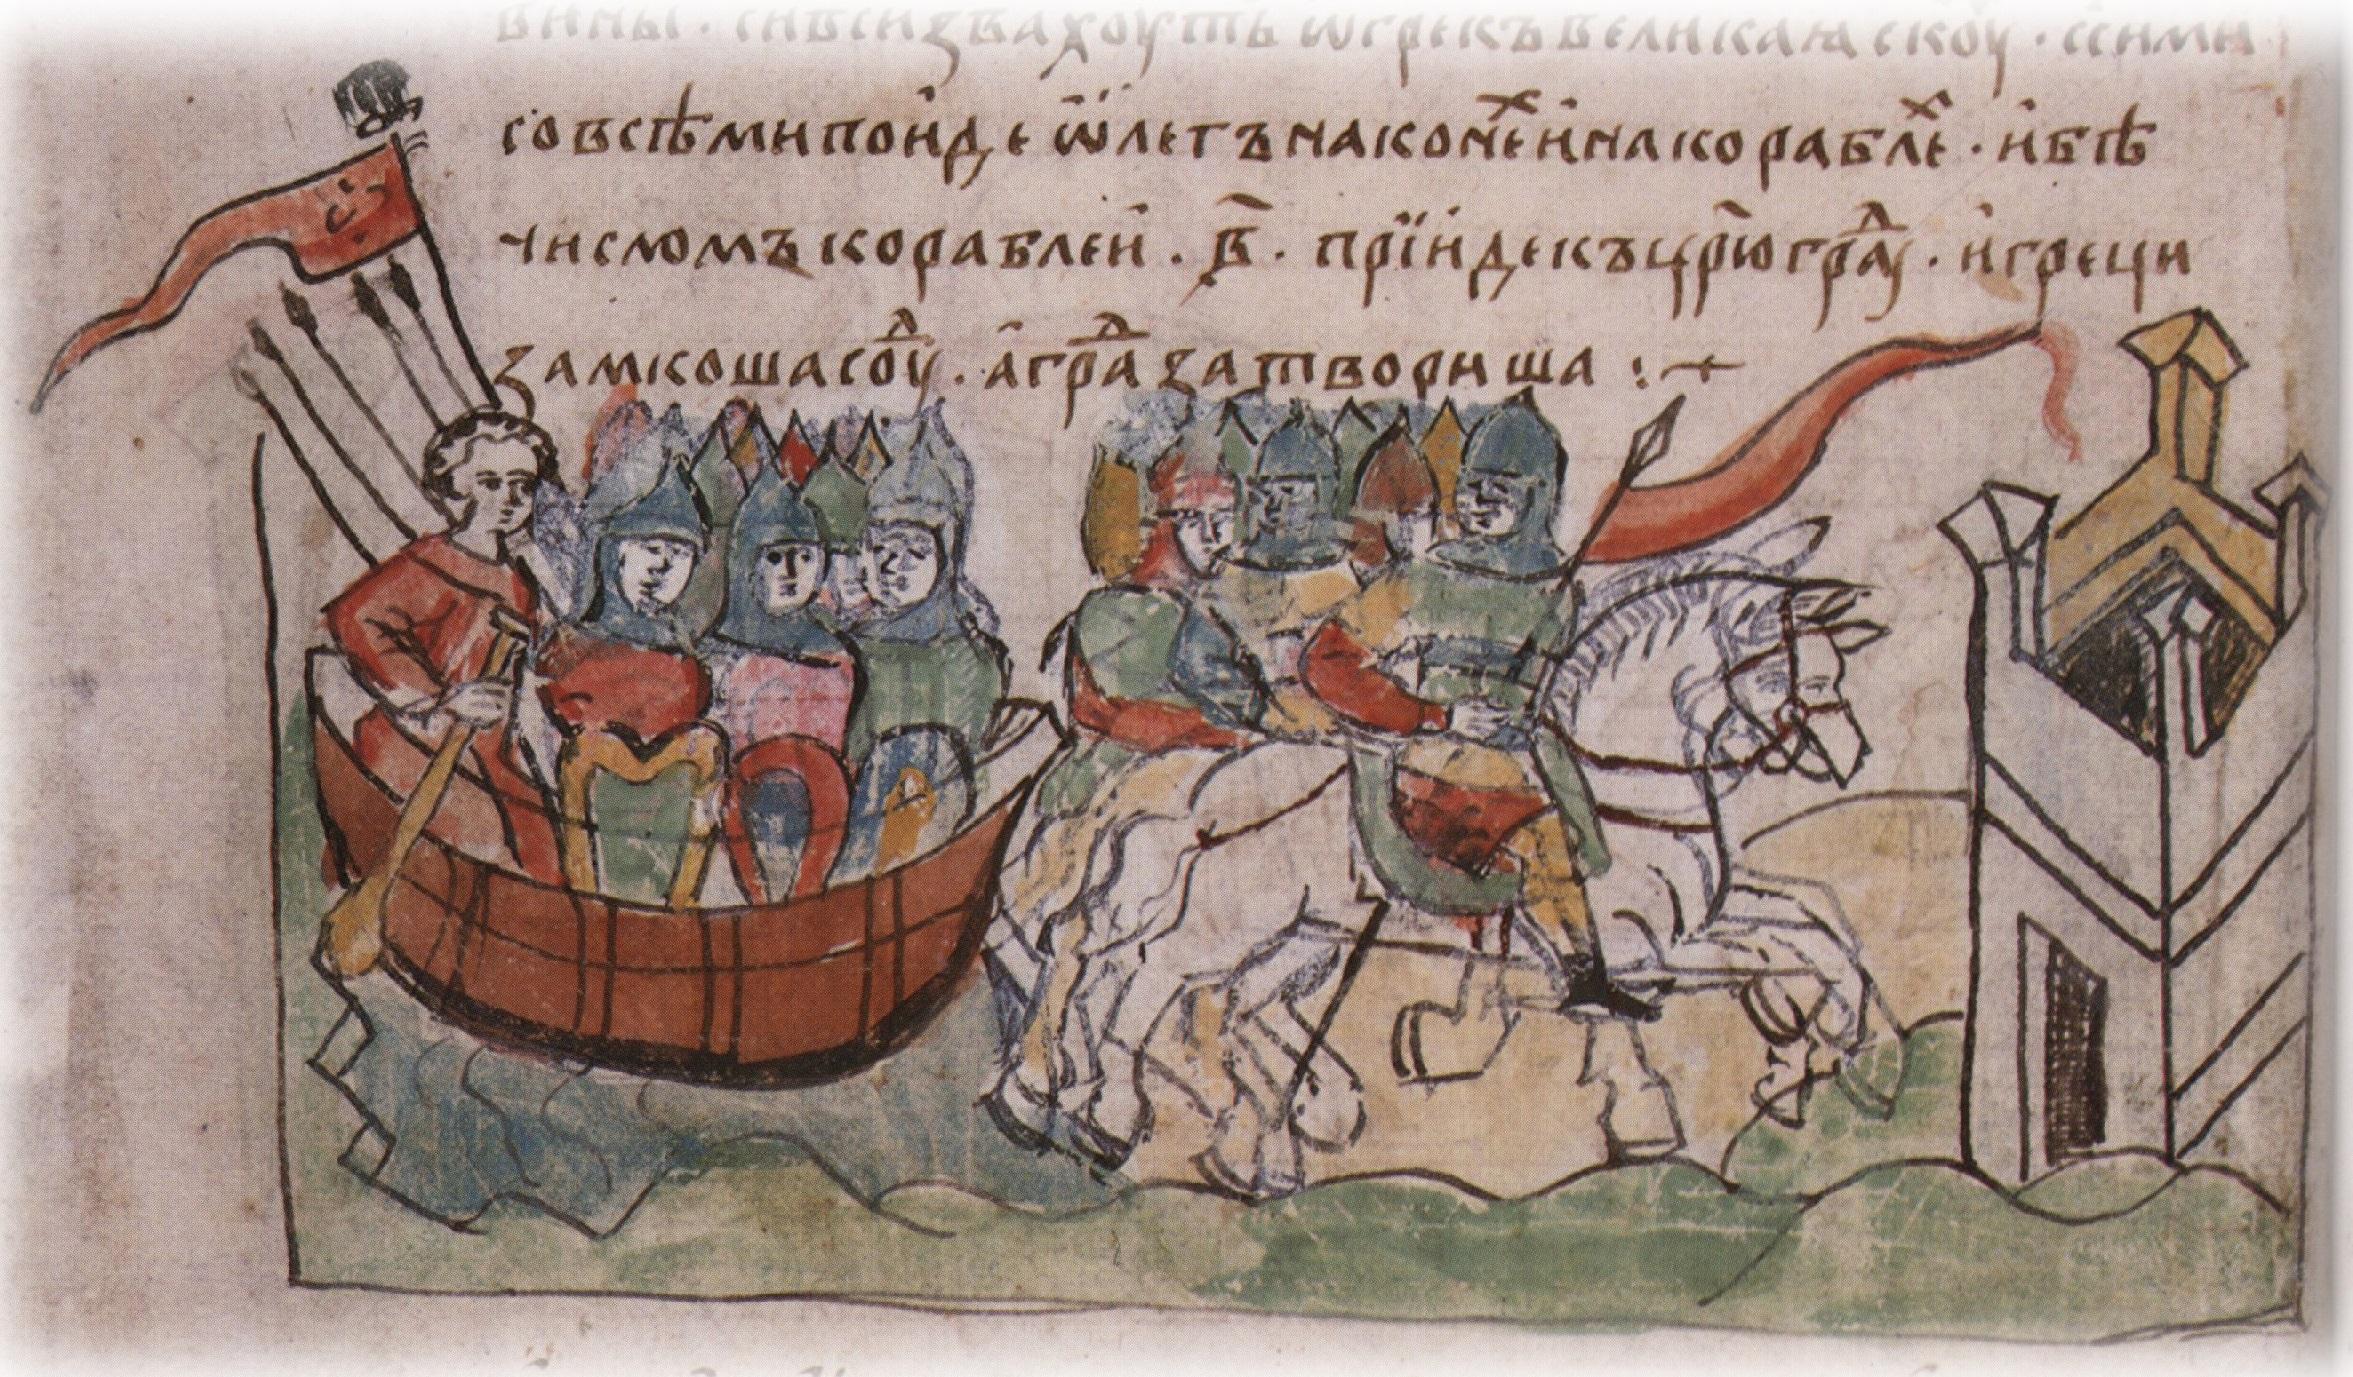 вины · си вси звахуть ѿ грекъ великаꙗ скоуⷴ · с сими
со всѣми поиде ѡлегъ на конеⷯ и на кораблеⷯ · и бѣ
числомъ кораблеи · в҃ · прїиде къ цр҃юграⷣу · и греци
замкоша соуⷣ · а граⷣ затвориша :·